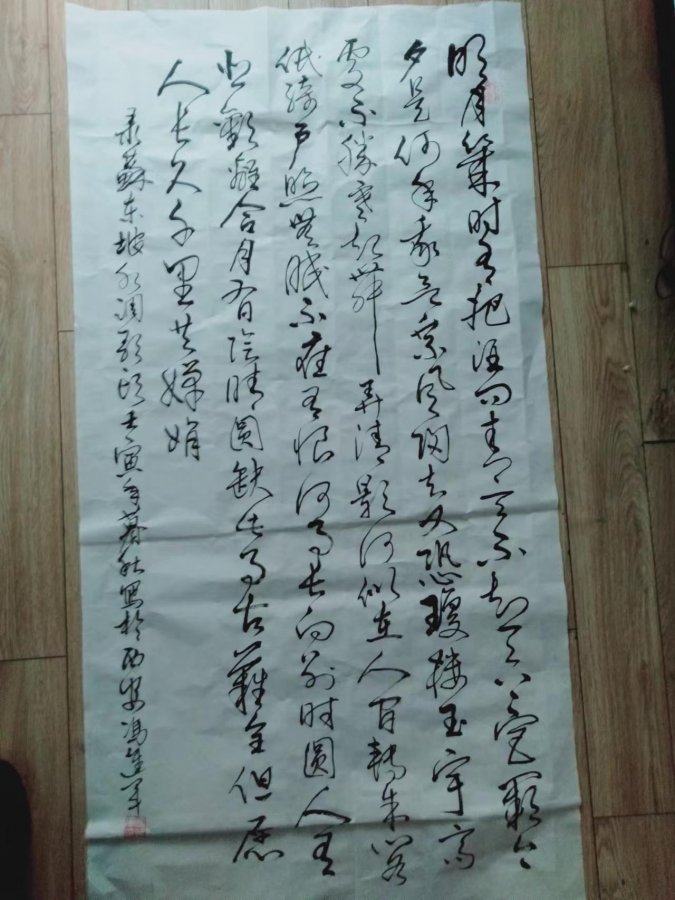 明月几时有把酒问青天不知天上宫阙今
夕是何年我欲乘风归去又恐琼楼玉宇高
处不胜寒起舞弄清影何似在人间转朱阁
低绮户照无眠不应有恨何事长向别时圆人有
悲欢离合月有阴晴圆缺此事古难全但愿
人长久千里共婵娟
录蘇东坡水调歌头壬寅年暮秋写於西安冯建军